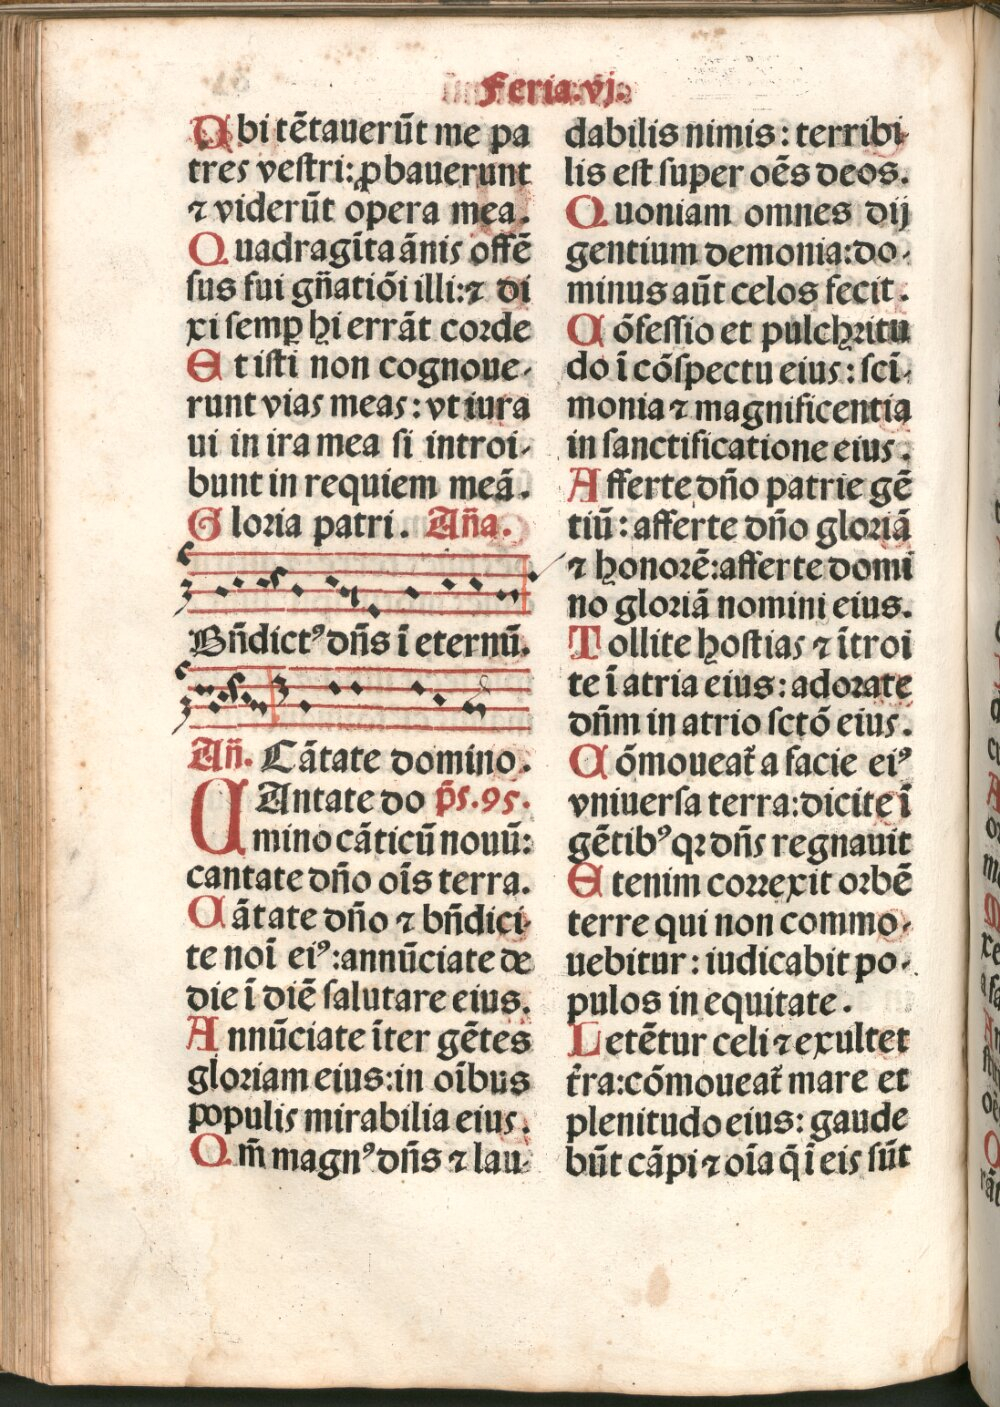 Feria.vj.
Ubi tētauerūt me pa
tres vestri: ꝓbauerunt
⁊ viderūt opera mea.
Quadragīta ānis offē
sus fui gn̄atiōi illi:⁊ di
xi semꝑ hi errāt corde
Et isti non cognoue-
runt vias meas: vt iura
ui in ira mea si introi-
bunt in requiem meā.
Gloria patri. An̄a.
Bn̄dictꝰ dn̄s ī eternū.
An̄. Cātate domino.
CAntate do p̄s.95.
mino cāticū nouū:
cantate dn̄o oīs terra.
Cātate dn̄o ⁊ bn̄dici-
te noī eiꝰ:annūciate de
die ī diē salutare eius.
Annūciate īter gētes
gloriam eius:in oībus
populis mirabilia eius.
Qm̄ magnꝰ dn̄s ⁊ lau-
dabilis nimis: terribi-
lis est super oēs deos.
Quoniam omnes dij
gentium demonia:do-
minus aūt celos fecit.
Cōfessio et pulchritu
do ī cōspectu eius: scī-
monia ⁊ magnificentia
in sanctificatione eius.
Afferte dn̄o patrie gē
tiū: afferte dn̄o gloriā
⁊ honorē:afferte domi
no gloriā nomini eius.
Tollite hostias ⁊ ītroi
te ī atria eius: adorate
dn̄m in atrio sctō eius.
Cōmoueat᷑ a facie eiꝰ
vniuersa terra:dicite ī
gētibꝰ qꝛ dn̄s regnauit
Etenim correxit orbē
terre qui non commo-
uebitur: iudicabit po-
pulos in equitate.
Letētur celi ⁊ exultet
t̄ra:cōmoueat᷑ mare et
plenitudo eius: gaude
būt cāpi ⁊ oīa q̄ ī eis sūt